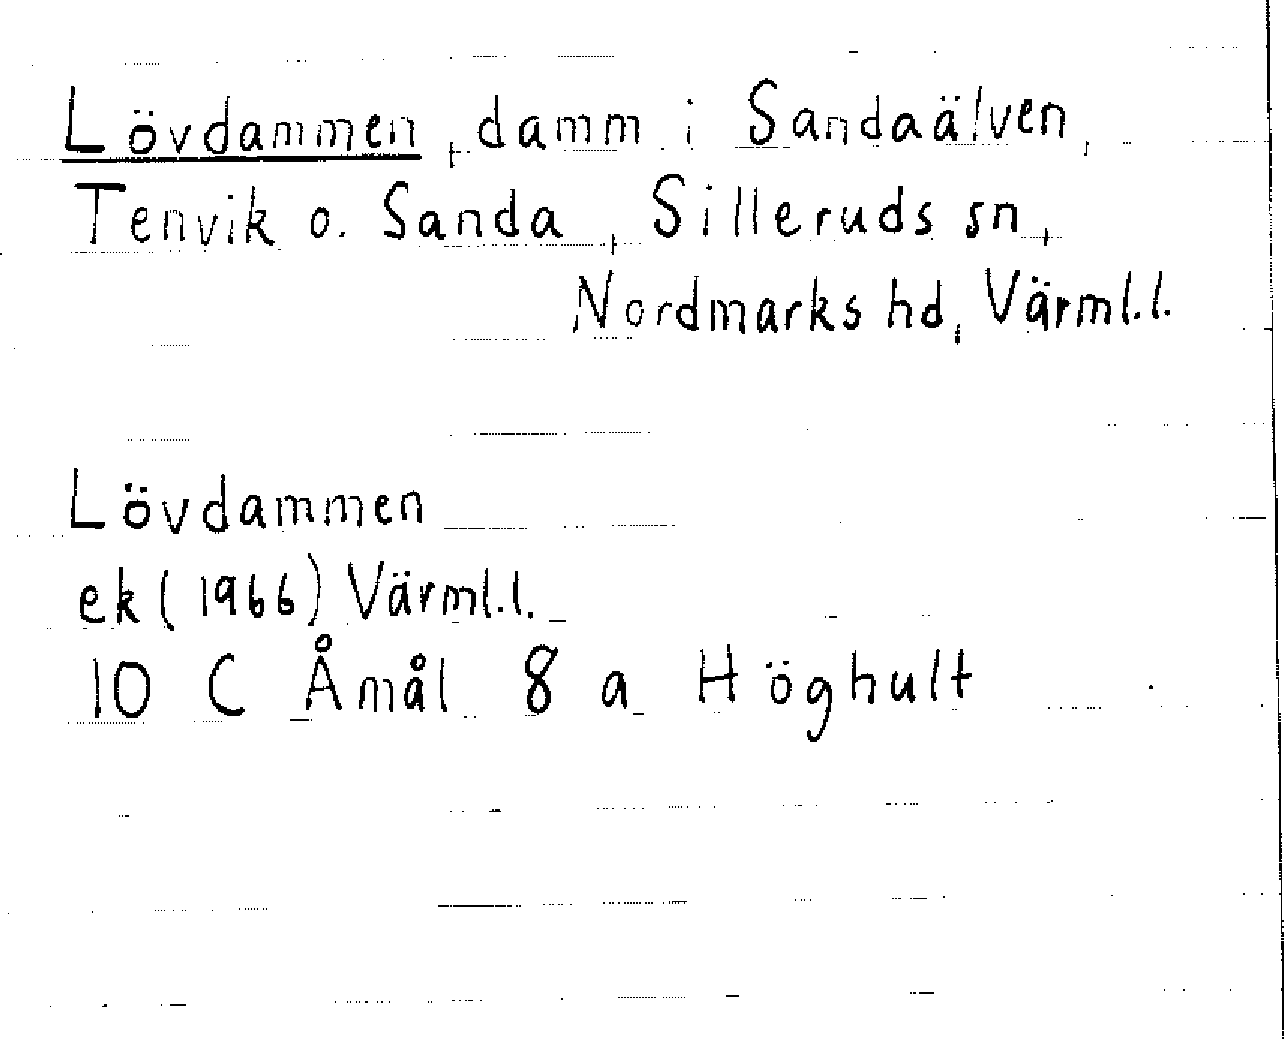 Lövdammen, damm i Sandaälven,
Tenvik o. Sanda, Silleruds sn,
Nordmarks hd, Värml.l.
Lövdammen
ek (1966) Värml.l.
10 C Åmål 8 a Höghult